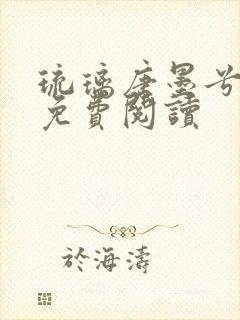 琉璃唐墨兮
免費閱讀
於海濤